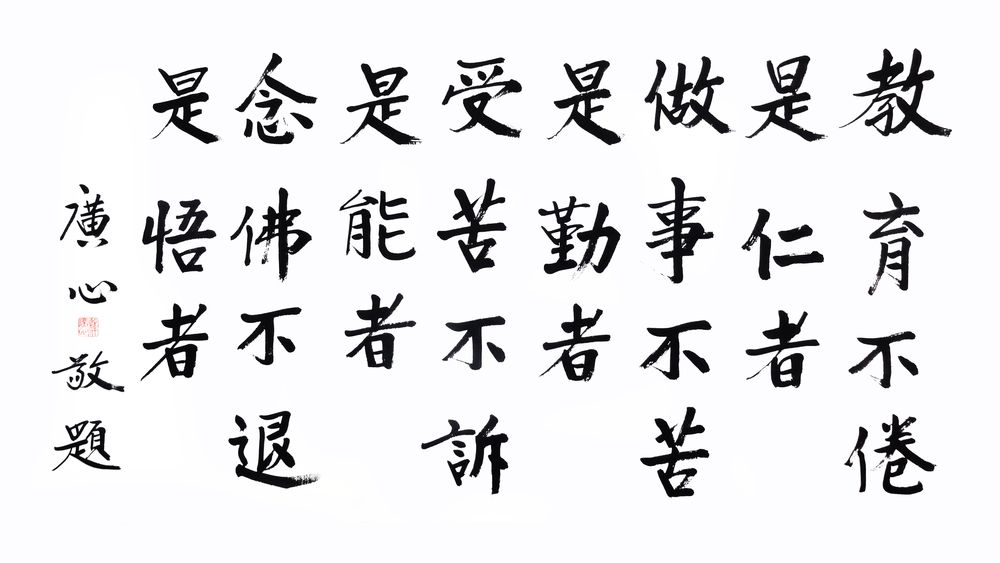 教育不倦
是仁者
做事不苦
是勤者
受苦不訴
是能者
念佛不退
是悟者
廣心敬題